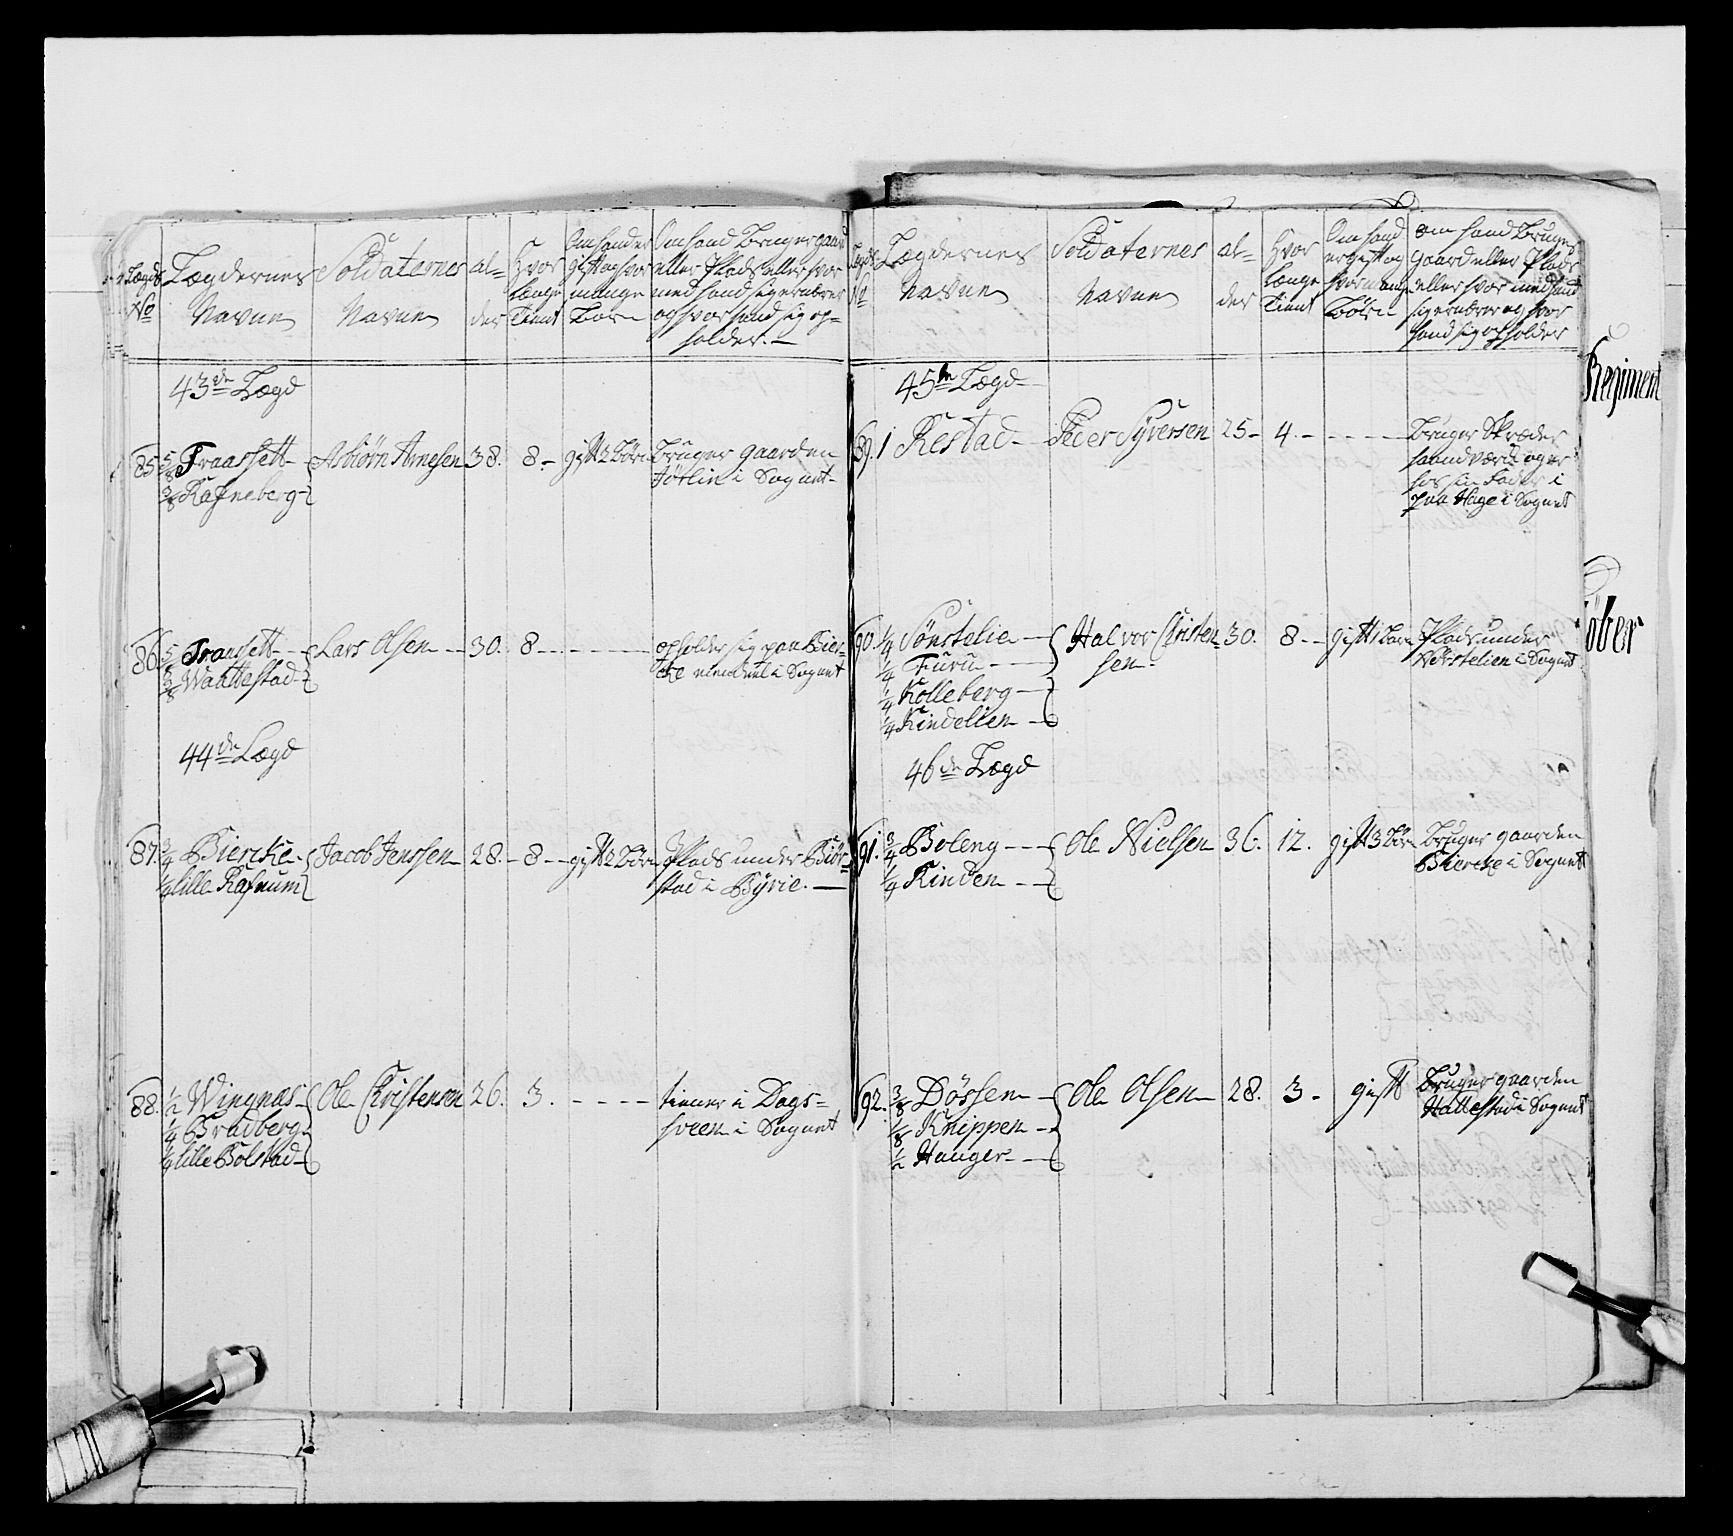 Lægds No
Lægdernes Navne
Soldaternes Navne
al= der
Hvor længe Tient
Om hand er gift og hvor mange Børn
Om hand Bruger gaard eller Plads eller hvor med hand sig ernærer og hvor hand sig op= holder.
43de Lægd
85. 5/8 Fraassett
3/8 Rafneberg
Asbiørn Arnesen 38. 8. gift 2 Børn
Bruger gaarden
i Sognet
86. 5/8 Fraasett
3/8 Waattestad
Lars Olsen 30. 8
opholder sig paa Bier=
cke i Sognet
44de Lægd
87. 3/4 Biercke
1/4 lille Rafnum
Jacob Jenssen 28. 8 gift 2 Børn
Plads under Biør=
stad i Byrie.
88. 1/2 Wingnæs
1/4 Bradberg
1/4 lille Bolstad
Ole Christensen 26. 3.
tiener i Dags=
sveen i Sognet
Lægds No
Lægdernes Navne
Soldaternes Navne
al= der
Hvor længe Tient
Om hand er gift og hvor mange Børn
Om hand Bruger gaard eller Plads eller hvor med hand sig ernærer og hvor hand sig opholder
45de Lægd
89. 1 Kestad
Peder Syversen 25 4.
Bruger Skræder
haandværck og er
hos sin Fader i
paa Hage i Sognet
90. 1/4 Sønstelie
1/4 Furu
1/4 Kolleberg
1/4 Kindelien
Halvor Christen=
sen
30. 8 gift 1 Barn
Plads under
i Sognet
46de Lægd
91. 3/4 Boleng
1/4 Kinden
Ole Nielsen 36. 12. gift 3 Børn
Bruger gaarden
Biercke i Sognet
92. 3/8 Døssen
1/8 Knippen
1/2 Hauger
Ole Olsen 28. 3 gift
Bruger gaarden
Hattestad i Sognet
Regiment
øber